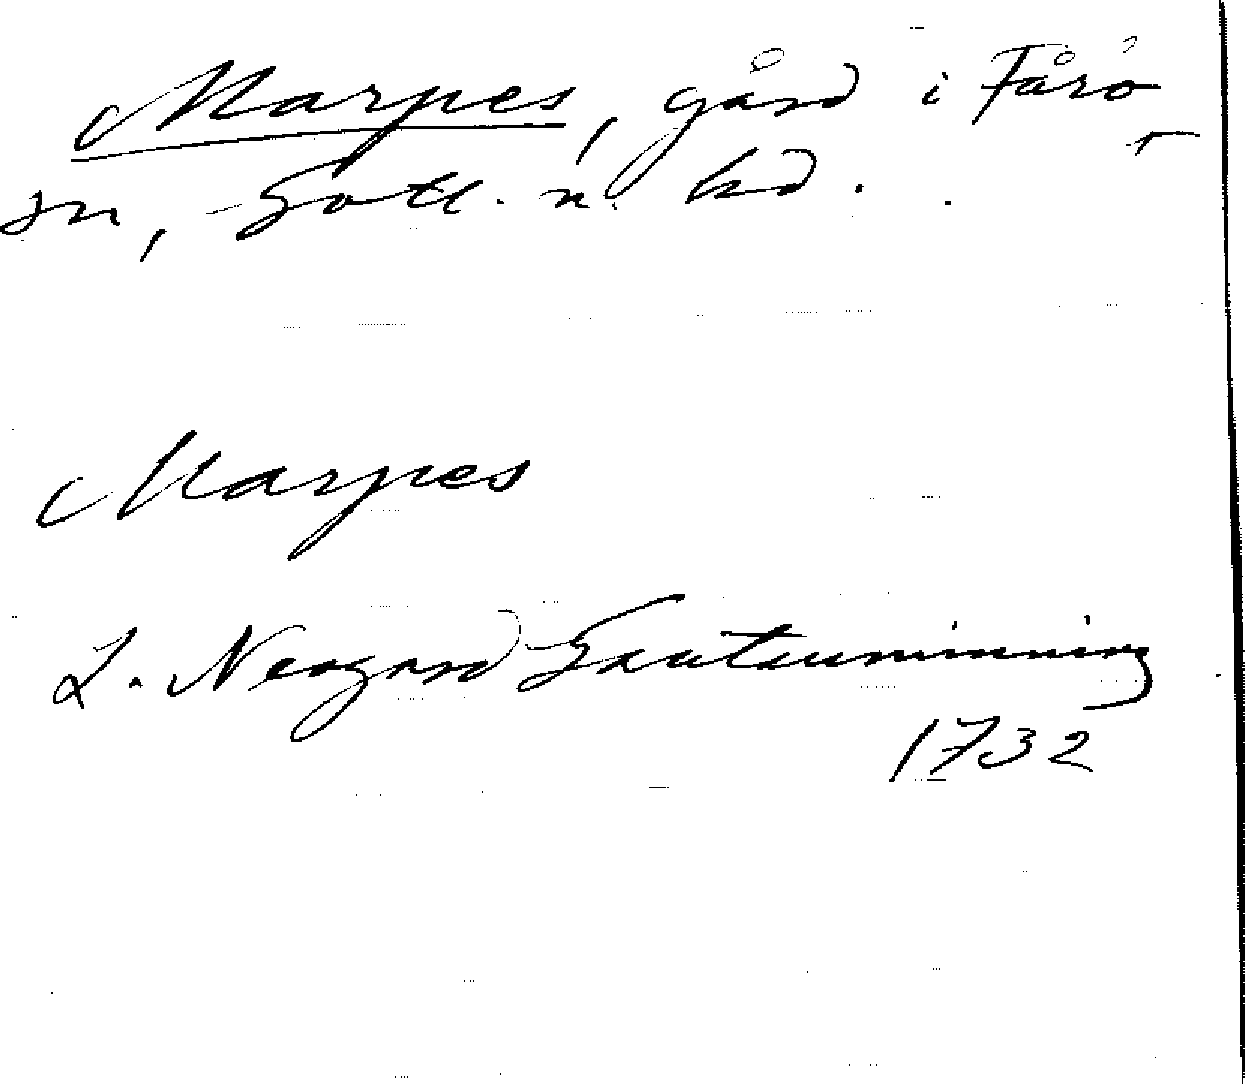 Marpes, gård i Fårö
sn, Gotl. n. hd.
Marpes
L. Neogard Gautauminning
1732